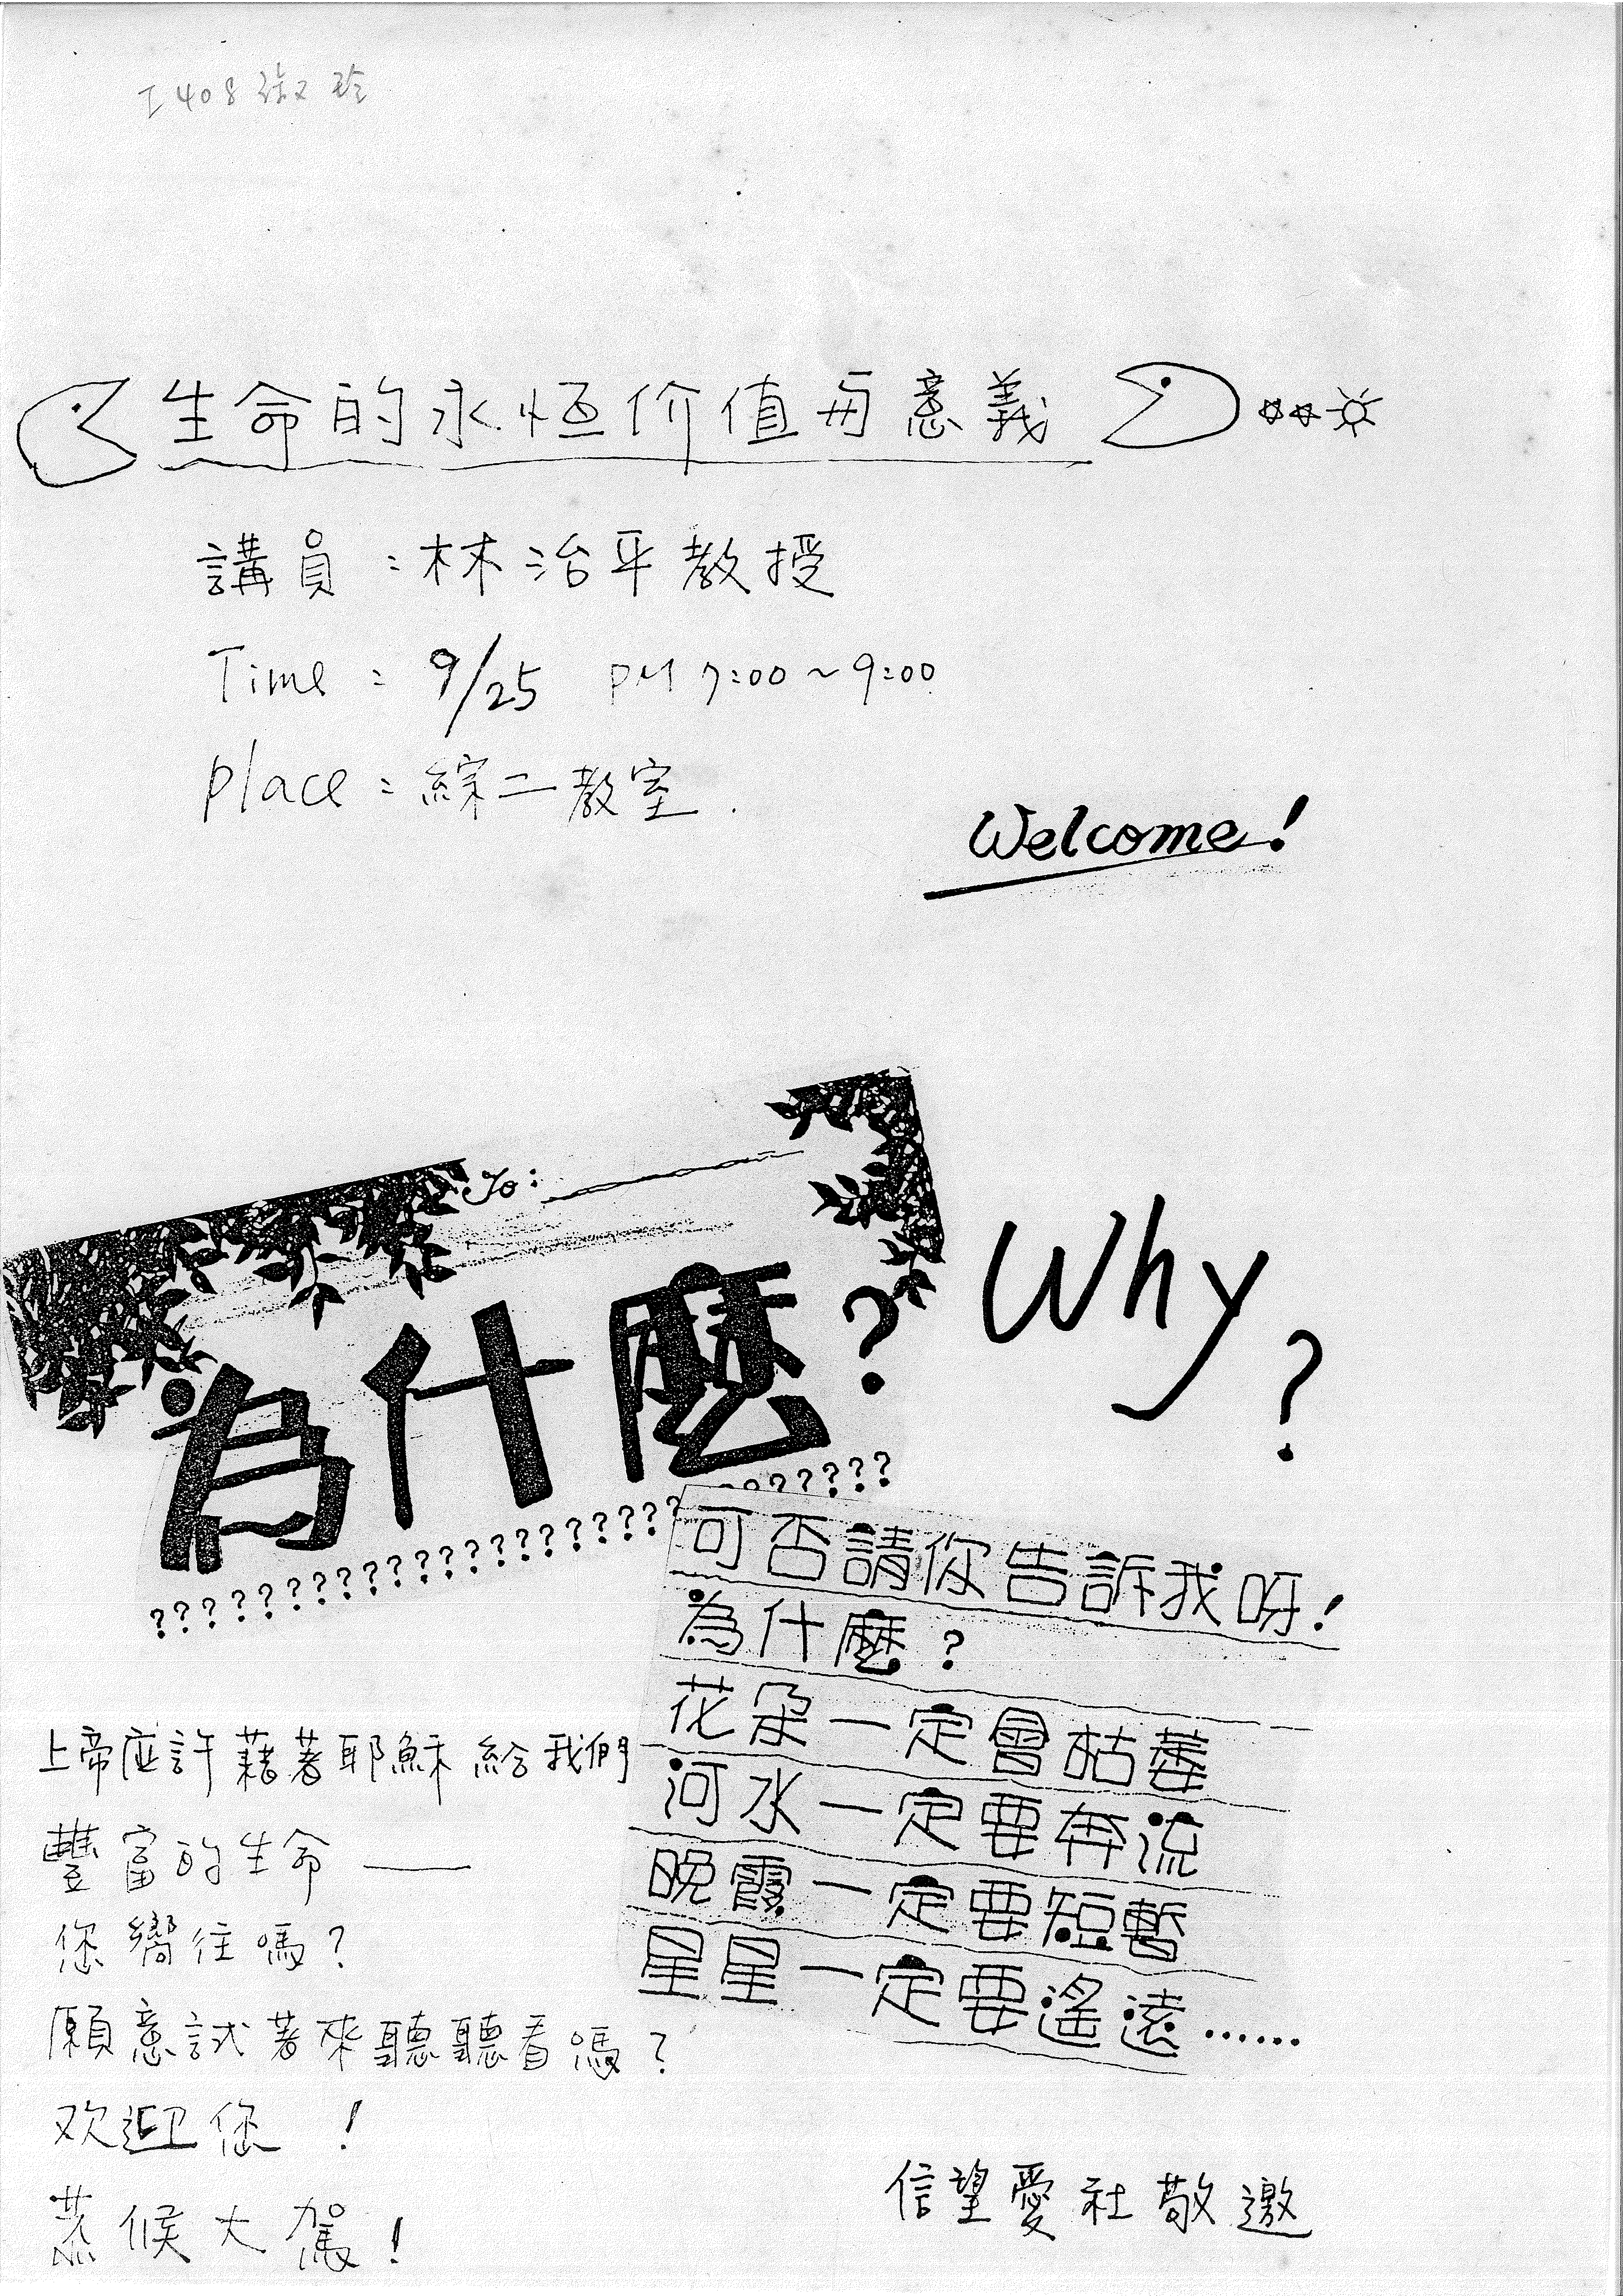 I408
生命的永恒价值与意義
講員：林治平教授
Time：9/25 PM 7:00～9:00
place：綜二教室.
Welcome!
To：
為什麼？
Why?
???????????????????????????
可否請你告訴我呀！
為什麼？
花朵一定會枯萎
河水一定要奔流
晚霞一定要短暫
星星一定要遙遠……
上帝应許藉著耶穌給我們
豐富的生命——
您嚮往嗎？
願意試著來聽聽看嗎？
欢迎您！
恭候大駕！
信望愛社敬邀